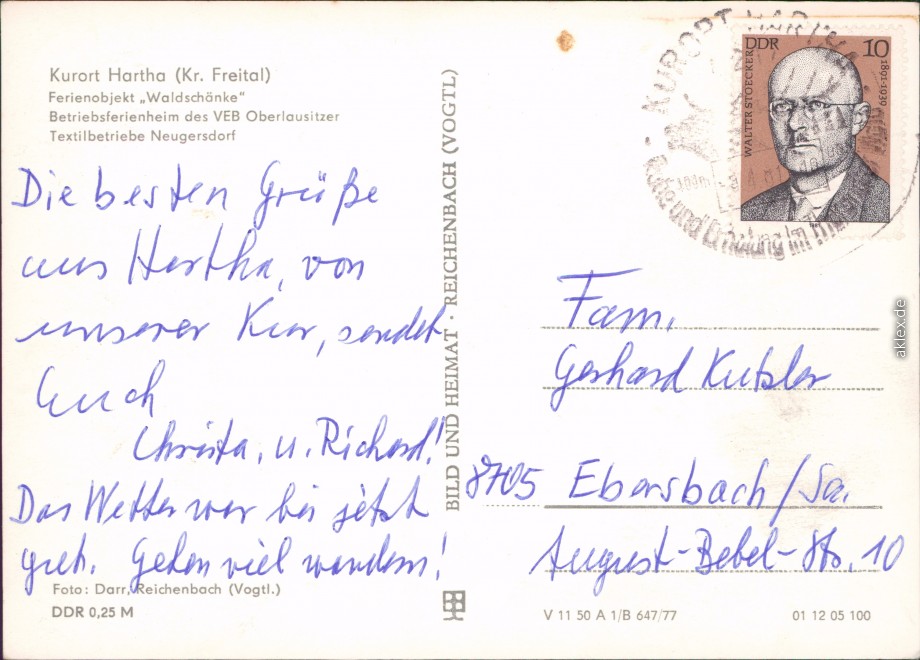 Kurort Hartha (Kr. Freital)
Ferienobjekt „Waldschänke“
Betriebsferienheim des VEB Oberlausitzer
Textilbetriebe Neugersdorf
Die besten Grüße
aus Hartha, von
unserer Kur, sendet
Euch
Christa, u. Richard!
Das Wetter war bis jetzt
gut. Gehen viel wandern!
Foto: Darr, Reichenbach (Vogtl.)
DDR 0,25 M
BILD UND HEIMAT · REICHENBACH (VOGTL)
KURORT HARTHA
und Erholung im
DDR 10
WALTER STOECKER
1891-1939
Fam.
Gerhard Kutzler
8705 Ebersbach/Sa.
August-Bebel-Str. 10
V 11 50 A 1/B 647/77
01 12 05 100
aklex.de